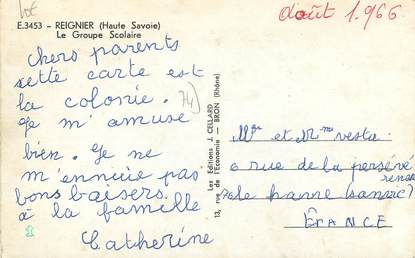 Août 1966
E.3453 - REIGNIER (Haute Savoie)
Le Groupe Scolaire
chers parents
cette carte est
la colonie. 74)
Je m'amuse
bien. Je ne
m'ennuie pas
bons baisers.
à la famille
Catherine
Les Editions J. CELLARD
13, rue de l'Economie — BRON (Rhône)
Mr et Mme vestu.
rue de la persévé
rence
le hanne (sarvic)
FRANCE